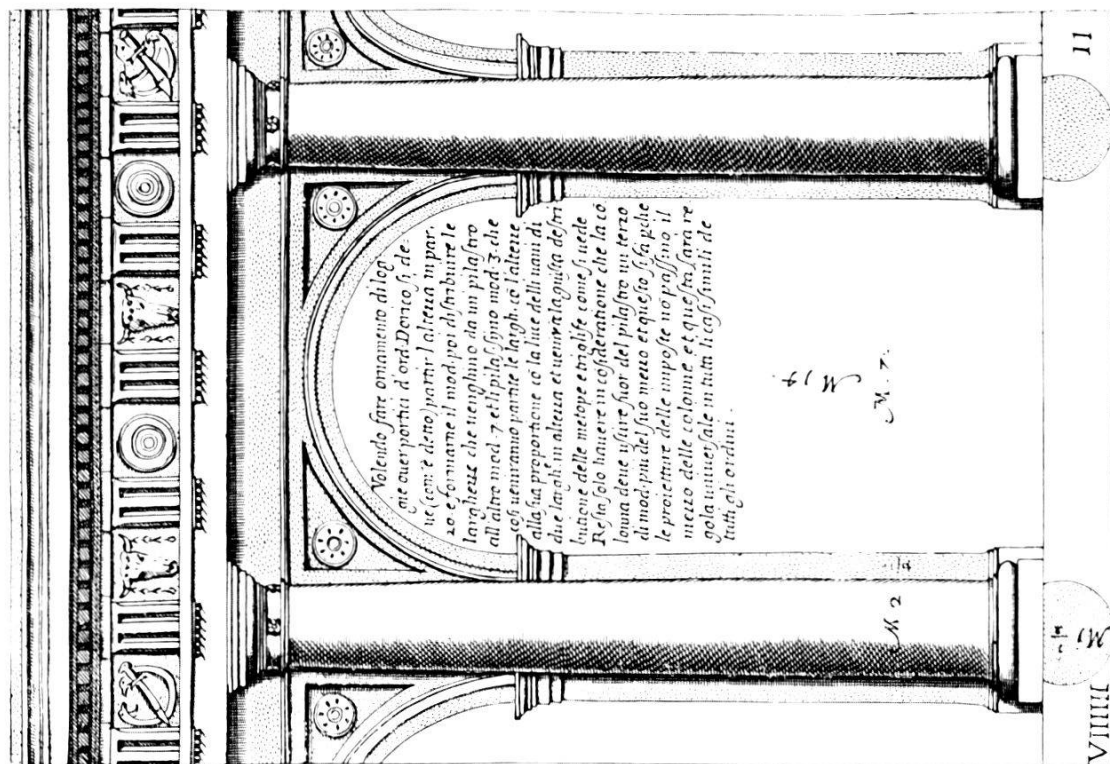 Volendo fare ornamento di log
gie ouer portici d'ord. Dorico si de
ue (com'è detto) partir l'altezza in par.
20. e formarne il mod. poi distribuire le
largheze che uenghino da un pilastro
all'altro mod. 7 et li pilast. siino mod. 3. che
cosi uerranno partite le largh. cō l'alteze
alla sua proportione cō la luce delli uani di
due largh. in alteza et uerra la giusta destri
butione delle metope e triglife come si uede
Resta solo hauere in cōsideratione che la cō
lonna deue uscire fuor del pilastro un terzo
di mod. piu del suo mezo et questo si fa pche
le proietture delle imposte nō passino il
mezo delle colonne et questa sara re
gola uniuersale in tutti li casi simili de
tutti gli ordini.
M 14
M. 7.
M 2
M 1
VIIIIII
11